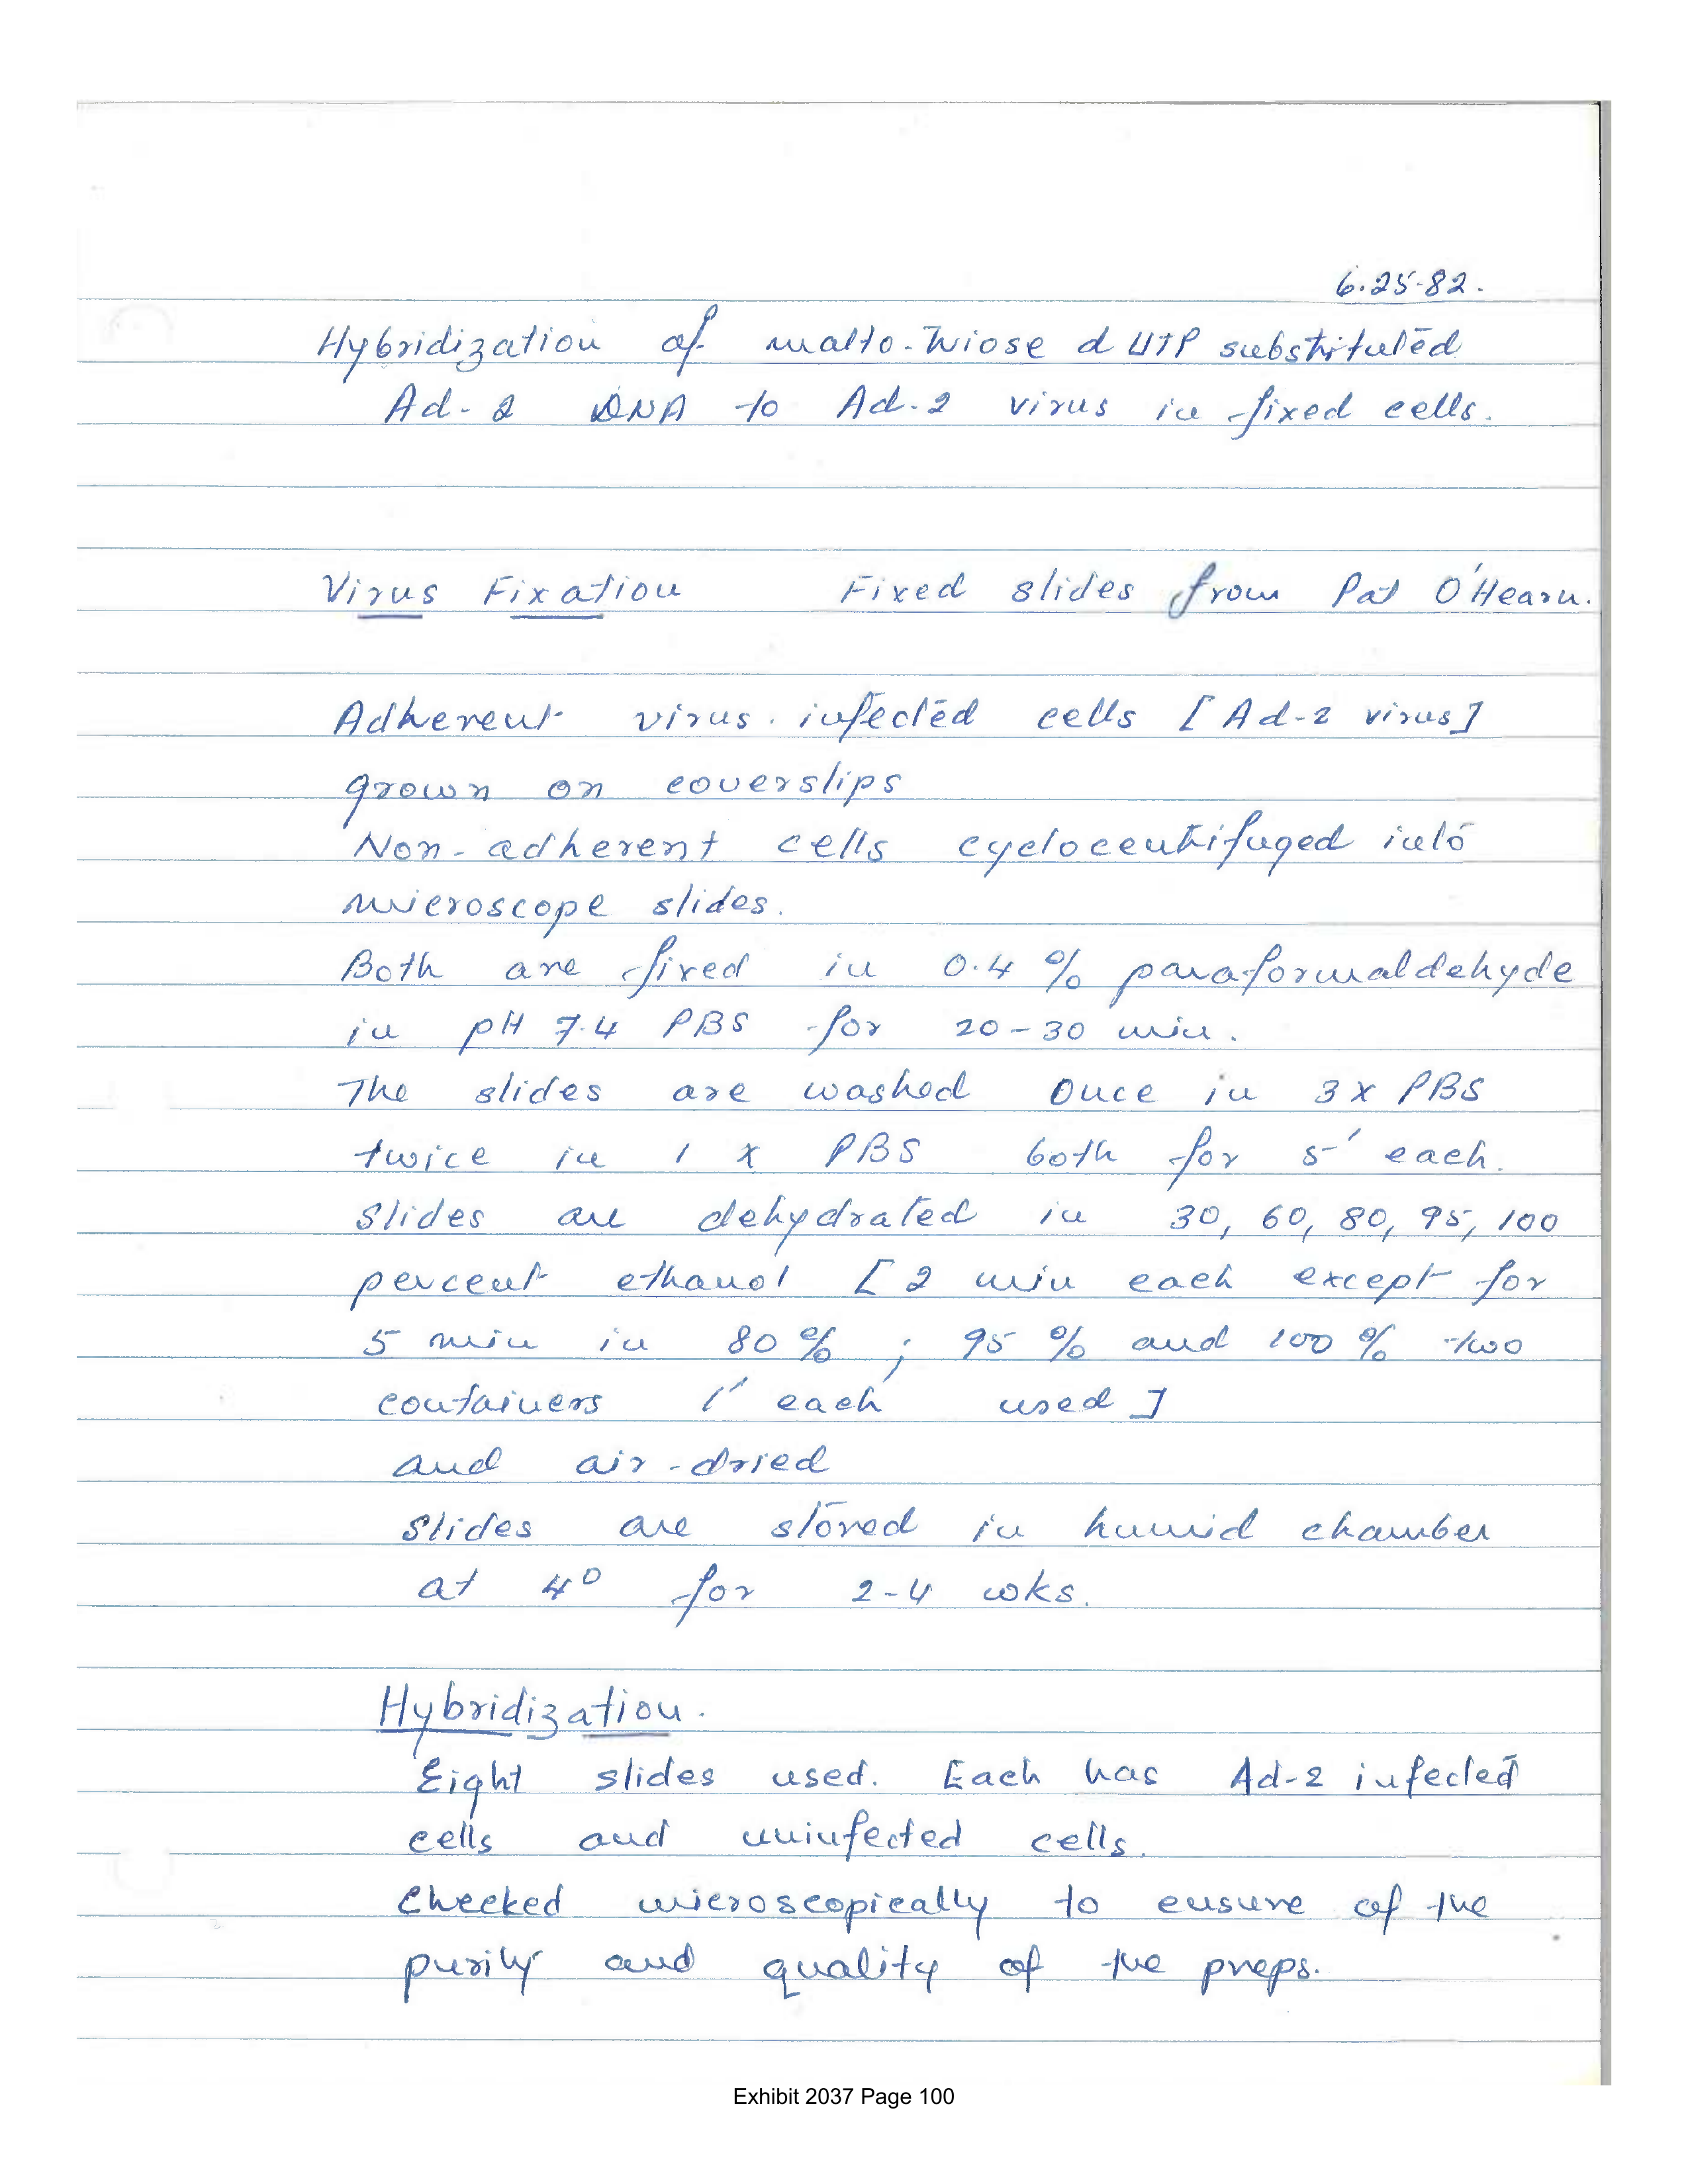 6.25-82.
Hybridization of malto-triose dUTP substituted
Ad-2 DNA to Ad-2 virus in fixed cells.
Virus Fixation Fixed slides from Pat O'Hearn.
Adherent virus infected cells [Ad-2 virus]
grown on coverslips
Non-adherent cells cyclocentrifuged into
microscope slides.
Both are fixed in 0.4 % paraformaldehyde
in pH 7.4 PBS for 20-30 min.
The slides are washed once in 3 x PBS
twice in 1 x PBS both for 5' each.
Slides are dehydrated in 30, 60, 80, 95, 100
percent ethanol [2 min each except for
5 min in 80 % ; 95 % and 100 % two
containers 1' each used]
and air-dried
Slides are stored in humid chamber
at 4° for 2-4 wks.
Hybridization.
Eight slides used. Each has Ad-2 infected
cells and uninfected cells.
Checked microscopically to ensure of the
purity and quality of the preps.
Exhibit 2037 Page 100